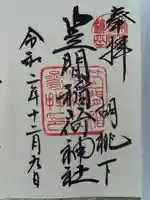 奉拝
胡桃下
笠間稲荷神社
令和二年十二月九日